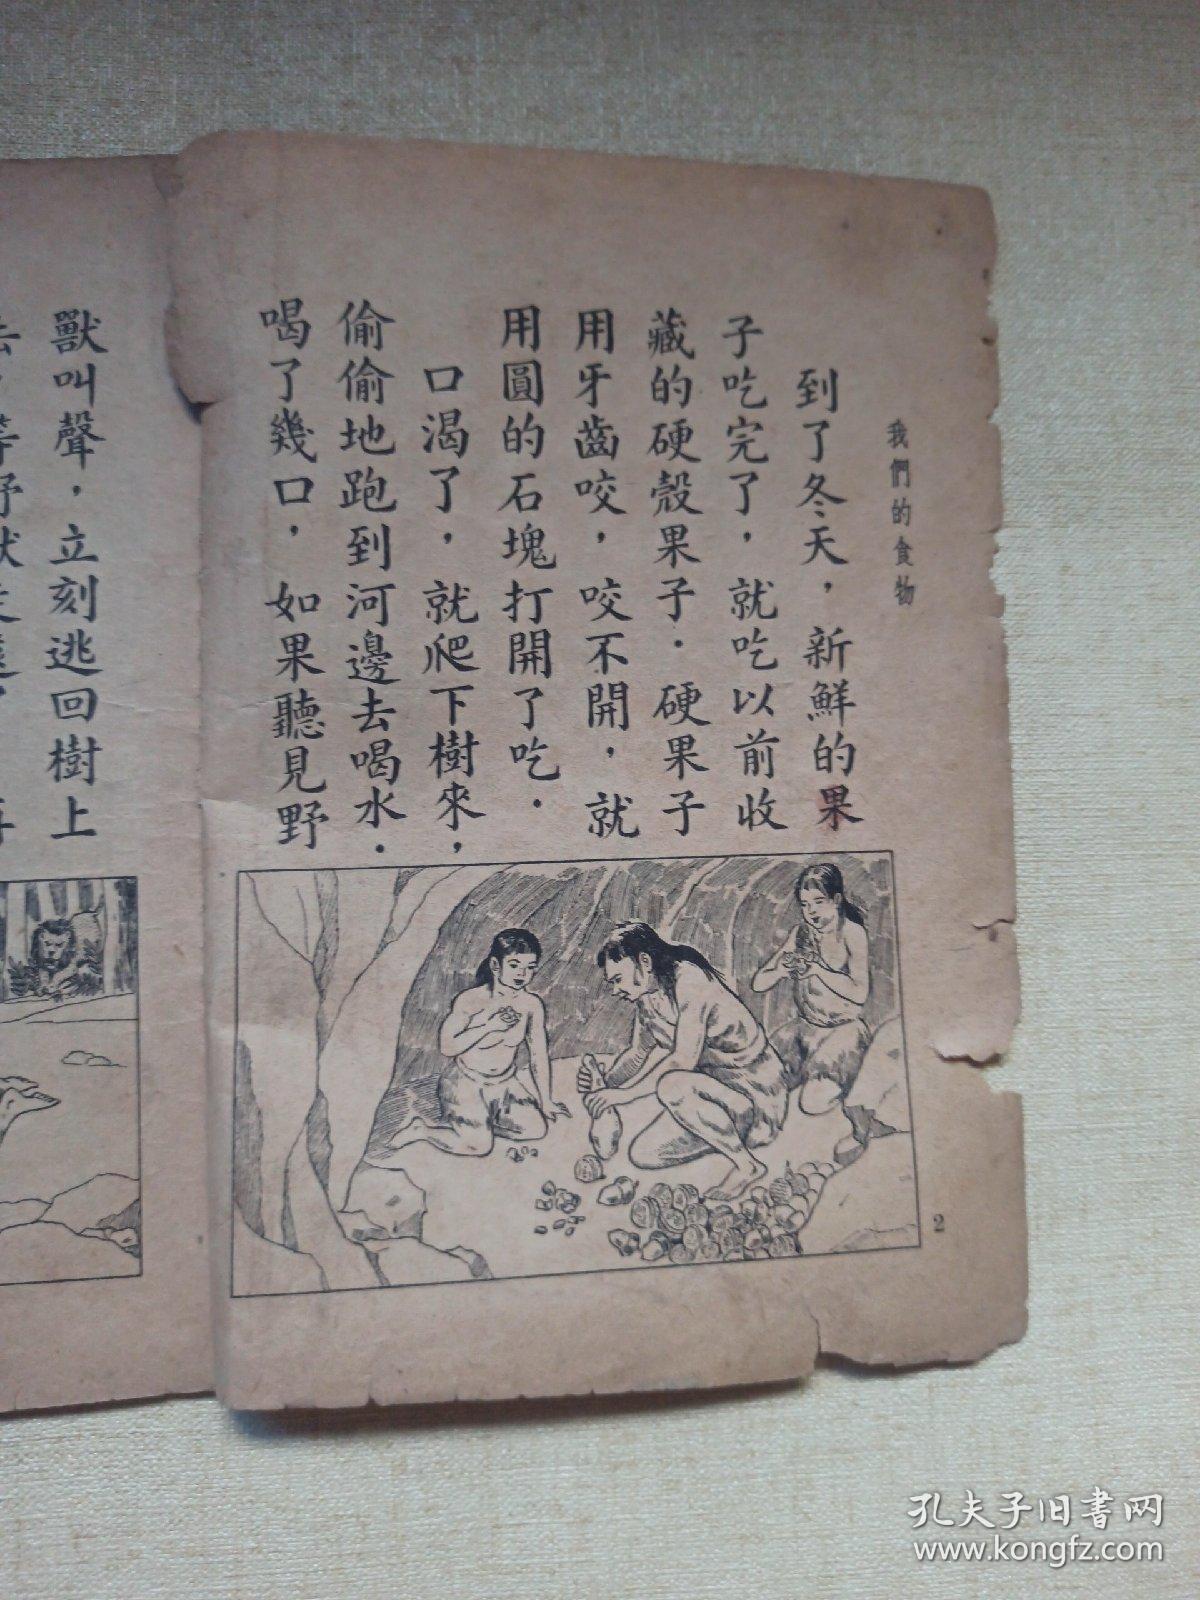 我們的食物
到了冬天，新鮮的果
子吃完了，就吃以前收
藏的硬殼果子．硬果子
用牙齒咬，咬不開，就
用圓的石塊打開了吃．
口渴了，就爬下樹來，
偷偷地跑到河邊去喝水．
喝了幾口，如果聽見野
2
獸叫聲，立刻逃回樹上
孔夫子旧书网
www.kongfz.com